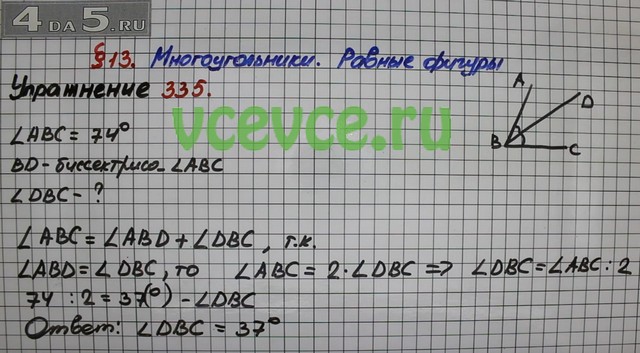 4 ДА 5.RU
§13. Многоугольники. Равные фигуры
Упражнение 335.
vcevce.ru
∠ABC = 74°
BD - биссектриса ∠ABC
∠DBC - ?
A
D
B
C
∠ABC = ∠ABD + ∠DBC, т.к.
∠ABD = ∠DBC, то ∠ABC = 2·∠DBC => ∠DBC = ∠ABC : 2
74 : 2 = 37(°) - ∠DBC
Ответ: ∠DBC = 37°